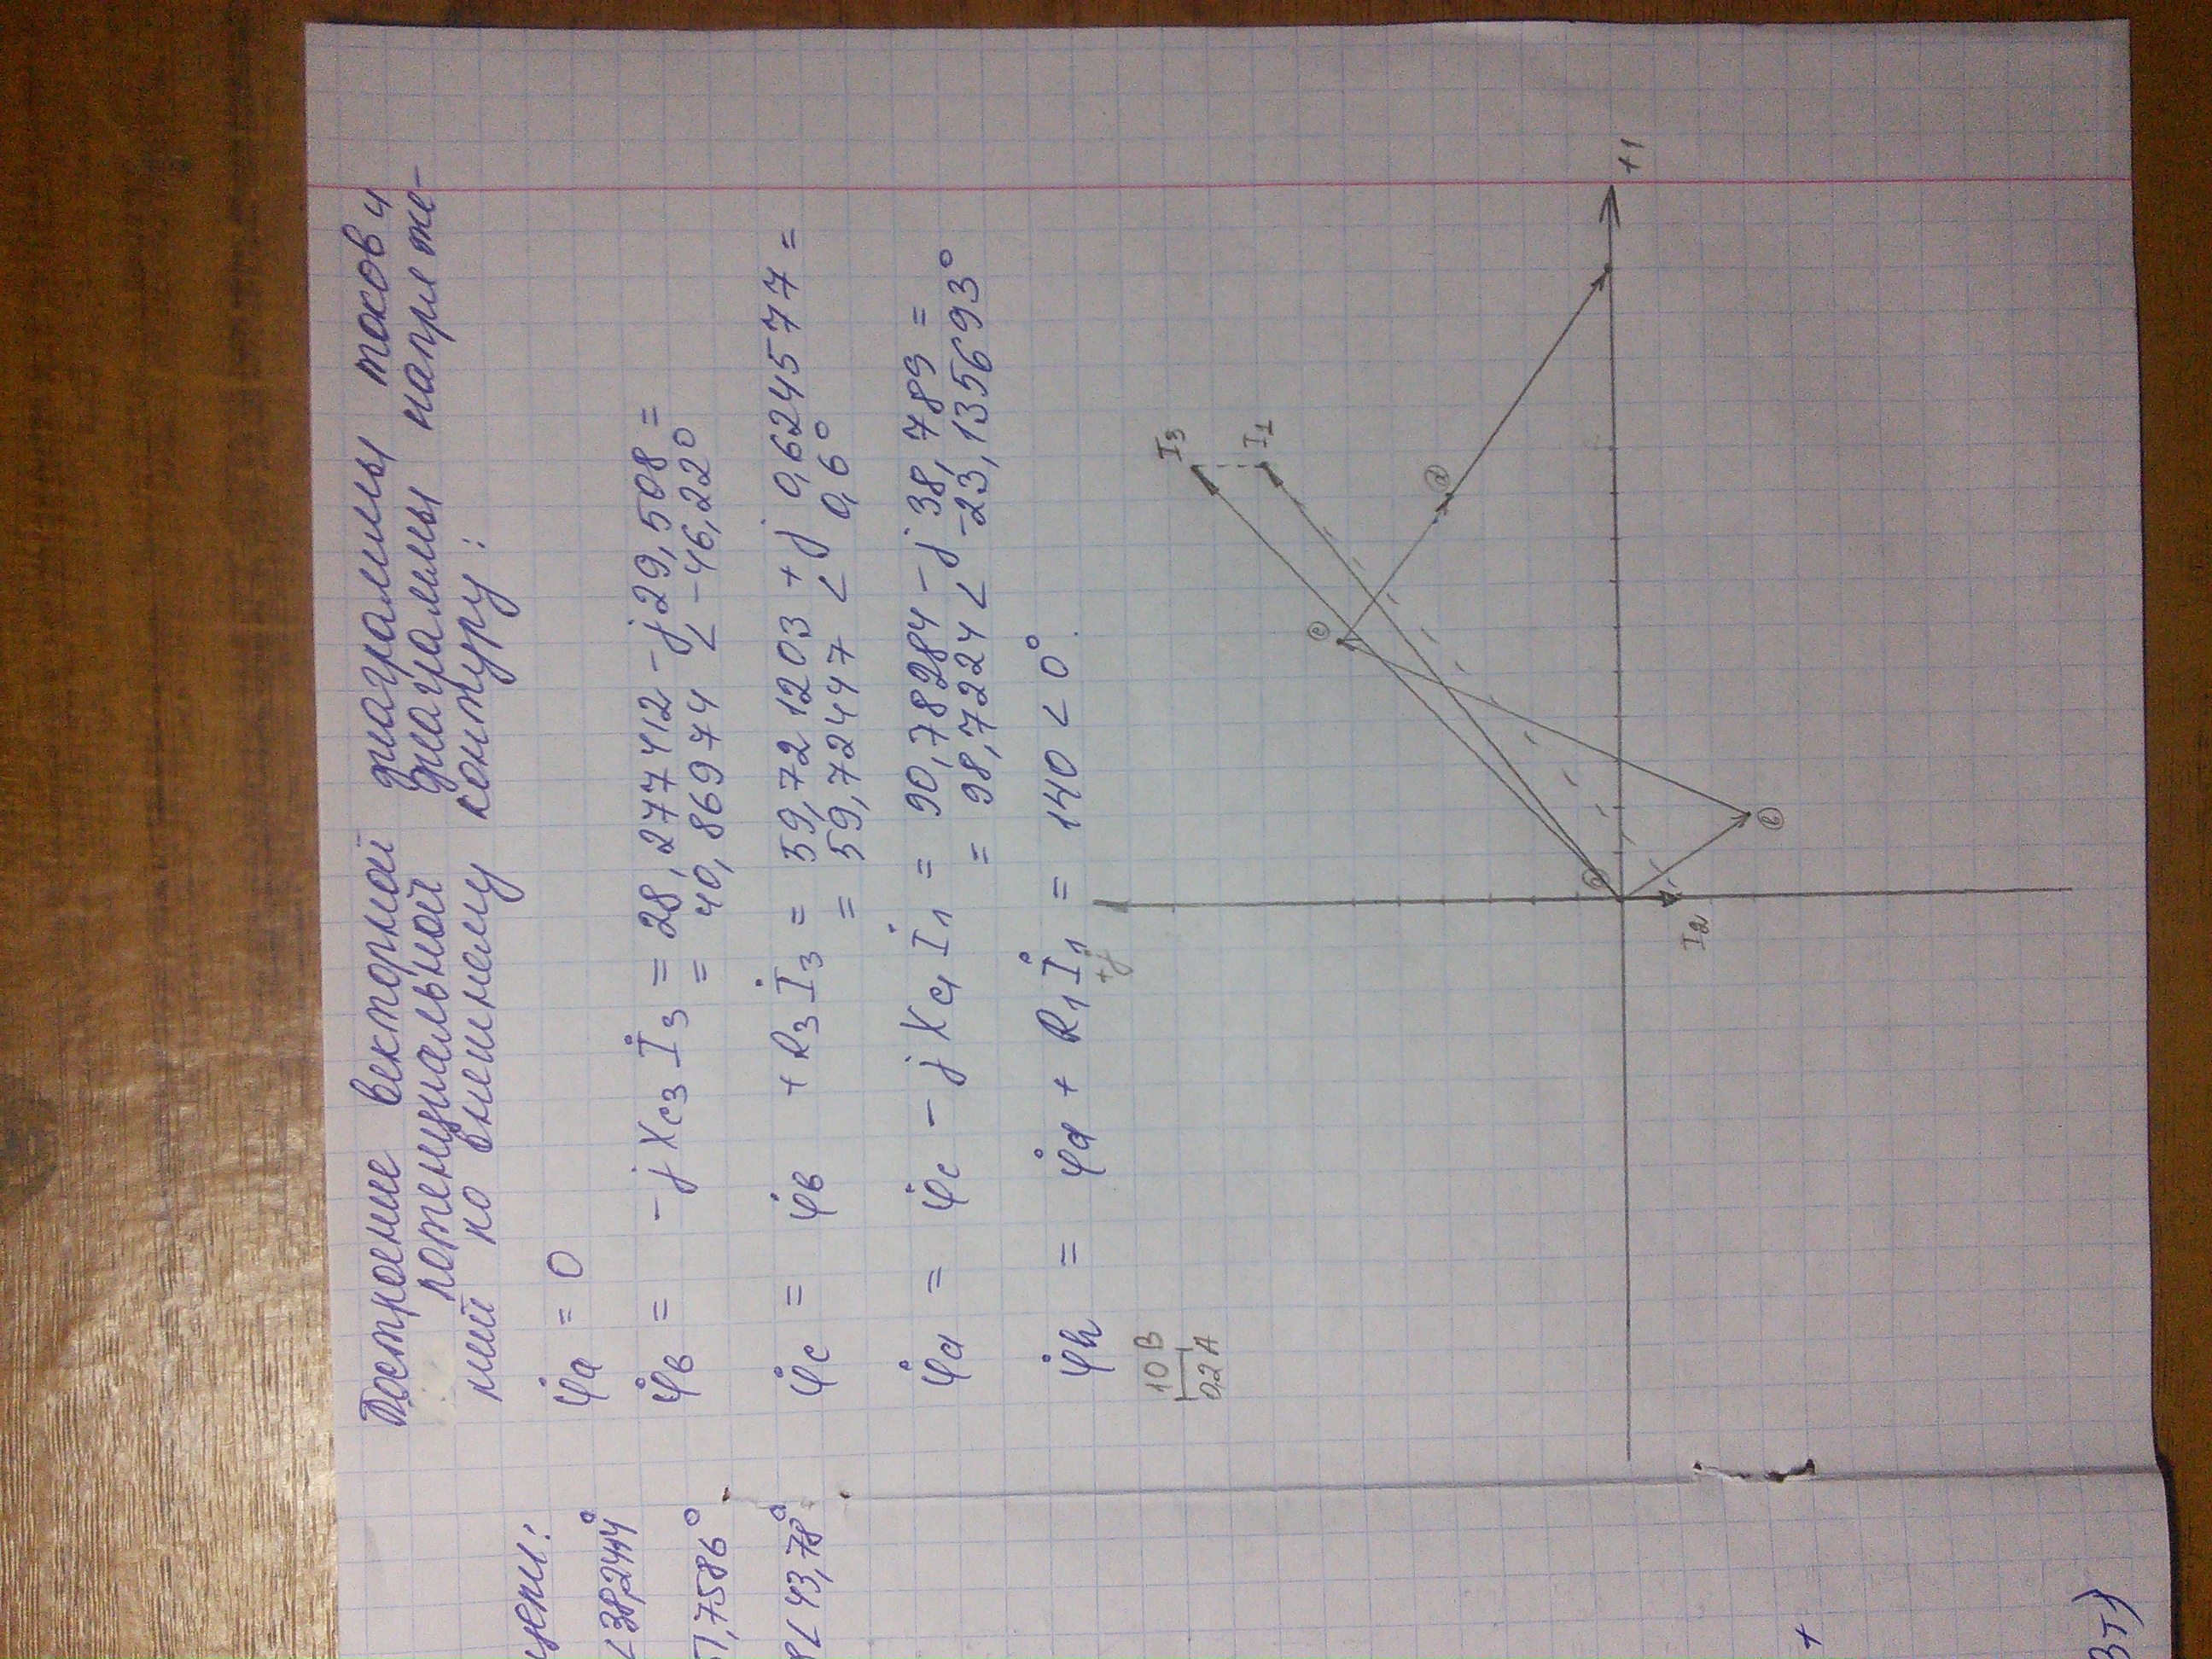 Построение векторной диаграммы токов и
потенциальной диаграммы напряже-
ний по внешнему контуру:
φ̇a = 0
φ̇в = -jXc3 İ3 = 28,277412 - j29,508 =
= 40,86974 ∠ -46,22°
φ̇c = φ̇в + R3 İ3 = 59,721203 + j 0,6245777 =
= 59,72447 ∠ 0,6°
φ̇d = φ̇c - jXc1 İ1 = 90,78284 - j 38,789 =
= 98,7224 ∠ -23,135693°
φ̇h = φ̇d + R1 İ1 = 140 ∠ 0°
10 В
0.2 А
+j
I3
I1
c
d
+1
a
в
I2
цепи:
∠38,244°
51,7586°
8∠43,78°
+
Вт)